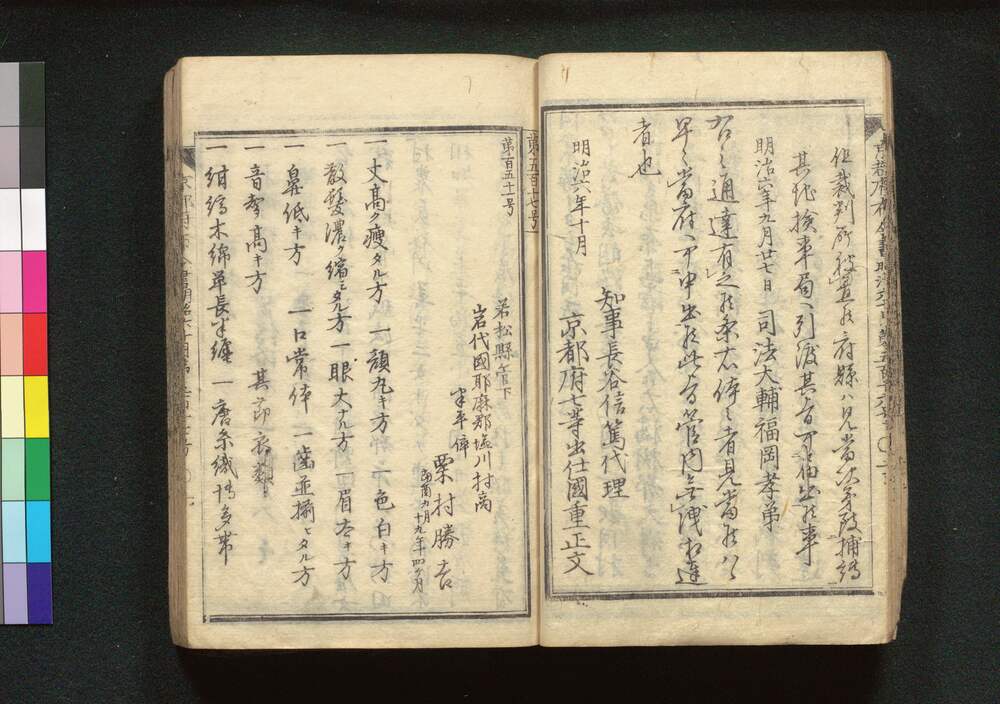 但裁判所被置候府縣ハ見當次第致捕縛
其地検事局ヘ引渡其旨可申出候事
明治六年九月廿七日 司法大輔福岡孝弟
右之通達有之候條右体之者見當候ハヽ
早々當府ヘ可申出候此旨管内無洩相達
者也
明治六年十月
知事長谷信篤代理
京都府七等出仕國重正文
第五百十七号
第百五十一号
若松縣管下
岩代國耶麻郡塩川村商
半平倅
栗村勝吉
当酉九月十九年四ケ月
一丈高ク痩タル方 一顔丸キ方 一色白キ方
一散髪濃ク縮ミタル方 一眼大ナル方 一眉太キ方
一鼻低キ方 一口常体 一歯並揃ヒタル方
一音声高キ方 其節衣類
一紺縞木綿単長半纏 一唐糸織博多帯